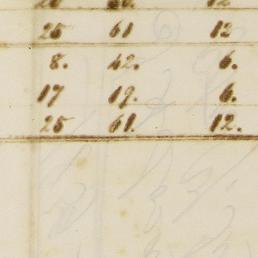 25 61 12
8. 42. 6.
17 19. 6.
25 61. 12.